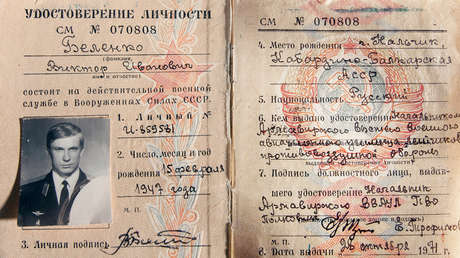 УДОСТОВЕРЕНИЕ ЛИЧНОСТИ
СМ № 070808
Беленко
(фамилия,
Виктор Иванович
имя и отчество)
состоит на действительной военной
службе в Вооруженных Силах СССР.
1. Личный №
И-959531
2. Число, месяц и год
рождения 15 февраля
1947 года
М. П.
3. Личная подпись
СМ № 070808
4. Место рождения г. Нальчик,
Кабардино-Балкарская
АССР
5. Национальность Русский
6. Кем выдано удостоверение Начальником
Армавирского высшего военного
авиационного училища летчиков
противовоздушной обороны
7. Подпись должностного лица, выдав-
шего удостоверение Начальник
Армавирского ВВАУЛ ПВО
Полковник
М. П.
8. Дата выдачи октября 1971